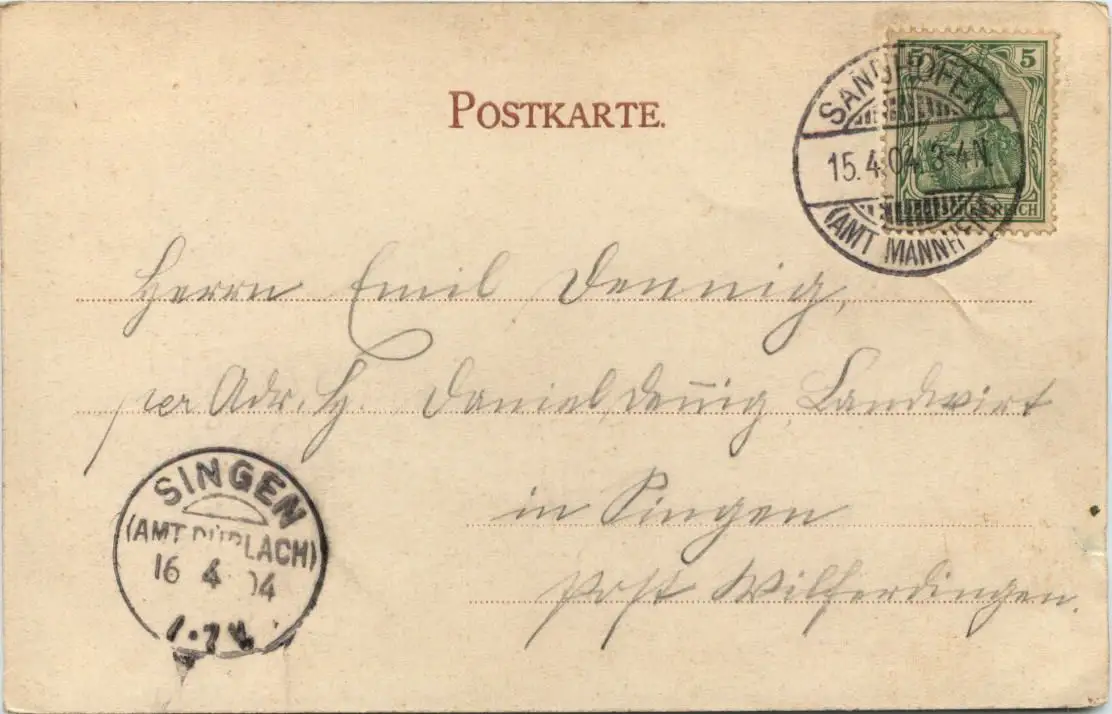 POSTKARTE.
5 5
SANDHOFEN
15.4.04. 3-4N.
(AMT MANNHEIM)
REICH
Herrn Emil Dennig,
per Adr. H. Daniel Den̅ig, Landwirt
in Singen
Post Wilferdingen.
SINGEN
(AMT DURLACH)
16 4 04